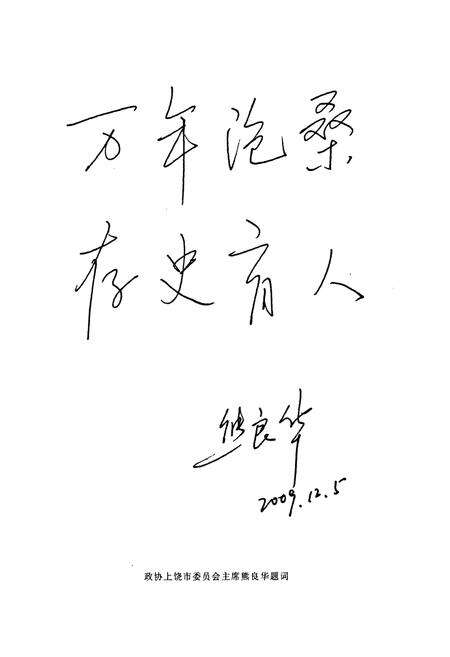 万年沧桑
存史育人
熊良华
2009.12.5
政协上饶市委员会主席熊良华题词